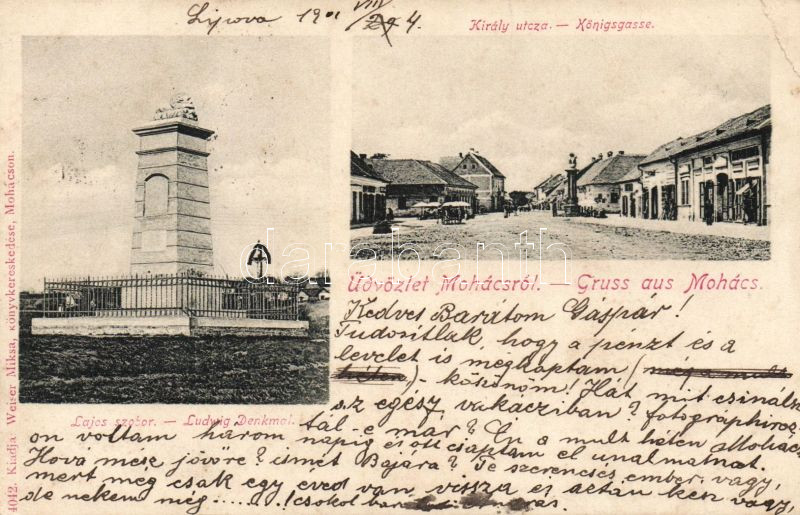 Lipova 190 VIII/29 4
Király utcza. — Königsgasse.
4042. Kiadja: Weiser Miksa, könyvkereskedése, Mohácson.
darabanth
Üdvözlet Mohácsról. — Gruss aus Mohács.
Lajos szobor. — Ludwig Denkmal.
Kedves Barátom Gáspár!
Tudósítlak, hogy a pénzt és a
levelet is megkaptam (
)- köszönöm! Hát mit csinálsz
az egész vakácziban? fotographiroz
tál-e már? Én a mult héten Mohács
on voltam három napig és ott csaptam el unalmatnat.
Hová mész jövőre? ismét Bajára? Te szerencsés ember vagy,
mert még csak egy éved van vissza és aztán kész vagy,
de nekem még ......! csokol